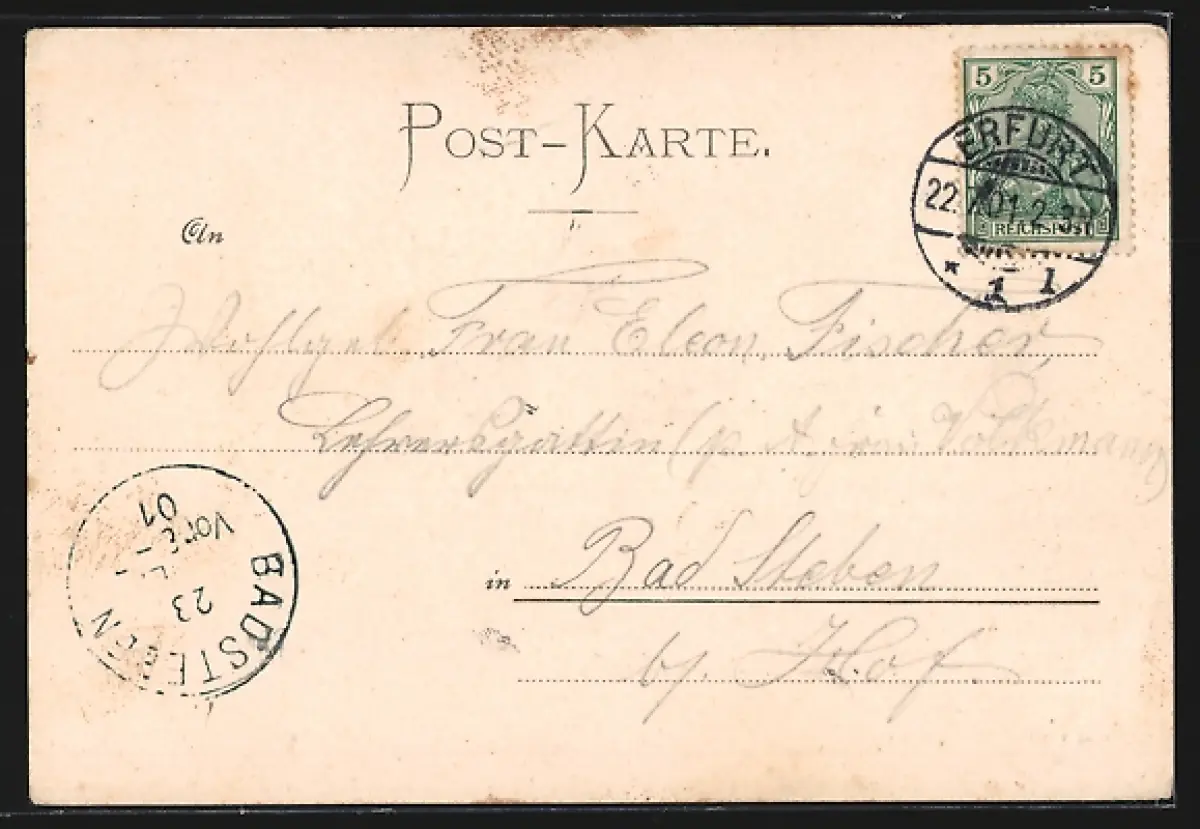 5 5
POST-KARTE.
ERFURT
22. 7. 01. 2-3
REICHSPOST
* 1 1
An
Wohlgeb Frau Eleon. Fischer,
Lehrersgattin (p. A. Frau Volkmann)
in Bad Steben
b/. Hof
BADSTEBEN
23
VORM
01